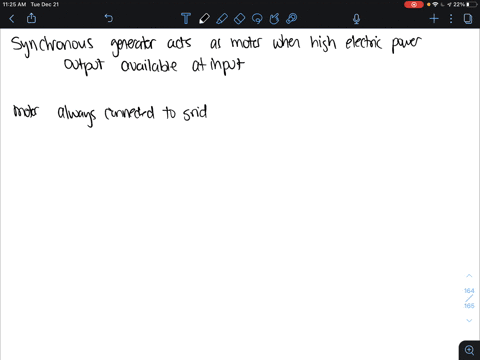 11:25 AM Tue Dec 21
22%
Synchronous generator acts as motor when high electric power
output available at input
motor always connected to grid
164
165